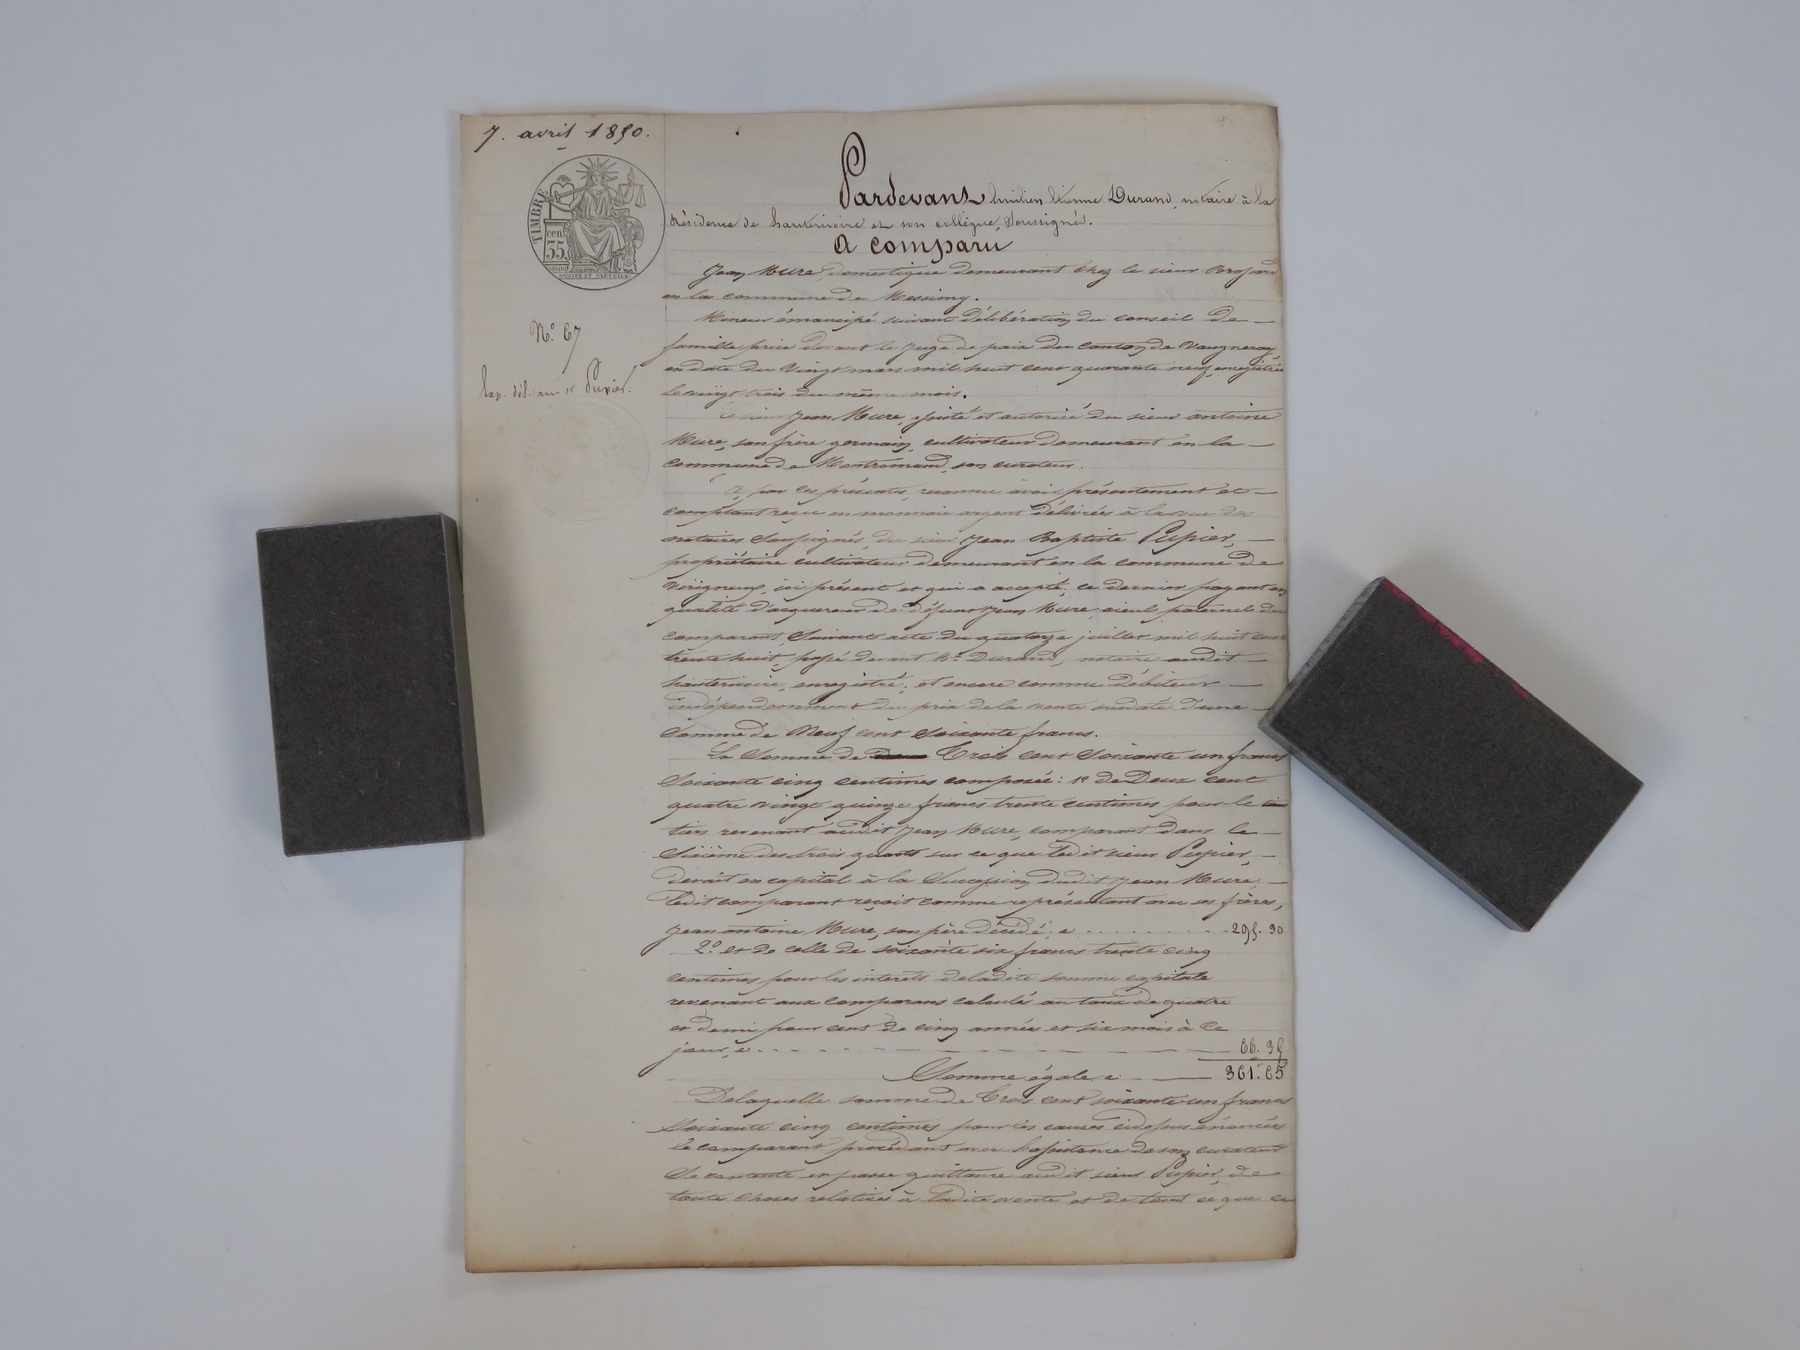 7. avril 1850.
TIMBRE
cen.
35
N.° 67
Exp. dél. au sr Pupier.
Pardevant Emilien Etienne Durand, notaire à la
Résidence de hauterivoire et son collègue, Soussignés.
A comparu
Jean Mure, domestique demeurant chez le sieur
en la commune de Messimy.
Mineur émancipé suivant délibération du conseil de
famille prise devant le juge de paix du canton de Vaugneray
en date du Vingt mars mil huit cent quarante neuf, enregistrée
le vingt trois du même mois.
Le sieur Jean Mure, assisté et autorisé du sieur antoine
Mure, son frère germain, cultivateur demeurant en la
commune de Montromand, son curateur.
A, par ces présentes, reconnu avoir présentement et
comptant reçu en monnaie argent délivrées à la vue des
notaires Soussignés, du sieur Jean Baptiste Pupier,
propriétaire cultivateur demeurant en la commune de
Virigneux, ici présent et qui a accepté, ce dernier payant en
qualité d'acquereur de défunt Jean Mure, aieul paternel du
comparant, Suivant acte du quatorze juillet mil huit cent
trente huit, passé devant Me Durand, notaire audit
hauterivoire, enregistré; et encore comme débiteur
indépendamment du prix de la vente susdaté d'une
Somme de Neuf cent soixante francs.
La Somme de Trois cent Soixante un francs
Soixante cinq centimes composée: 1o de Deux cent
quatre vingt quinze francs trente centimes pour le
tiers revenant audit Jean Mure, comparant dans le
Sixième des trois quarts sur ce que ledit sieur Pupier,
devait en capital à la Succession dudit Jean Mure,
ledit comparant reçoit comme représentant avec ses frères,
Jean antoine Mure, son père décédé; c 295. 30
2.° et de celle de soixante six francs trente cinq
centimes pour les interets de ladite somme capitale
revenant aux comparans calculés au taux de quatre
et demi pour cent de cinq années et six mois à ce
jour, c 66. 35
Somme égale c 361. 65
De laquelle somme de Trois cent soixante un francs
Soixante cinq centimes pour les causes cidessus énoncées
le comparant procédant avec l'assistance de son curateur
Se contente et passe quittance audit sieur Pupier, de
toute choses relatives à ladite vente et de tout ce que ce